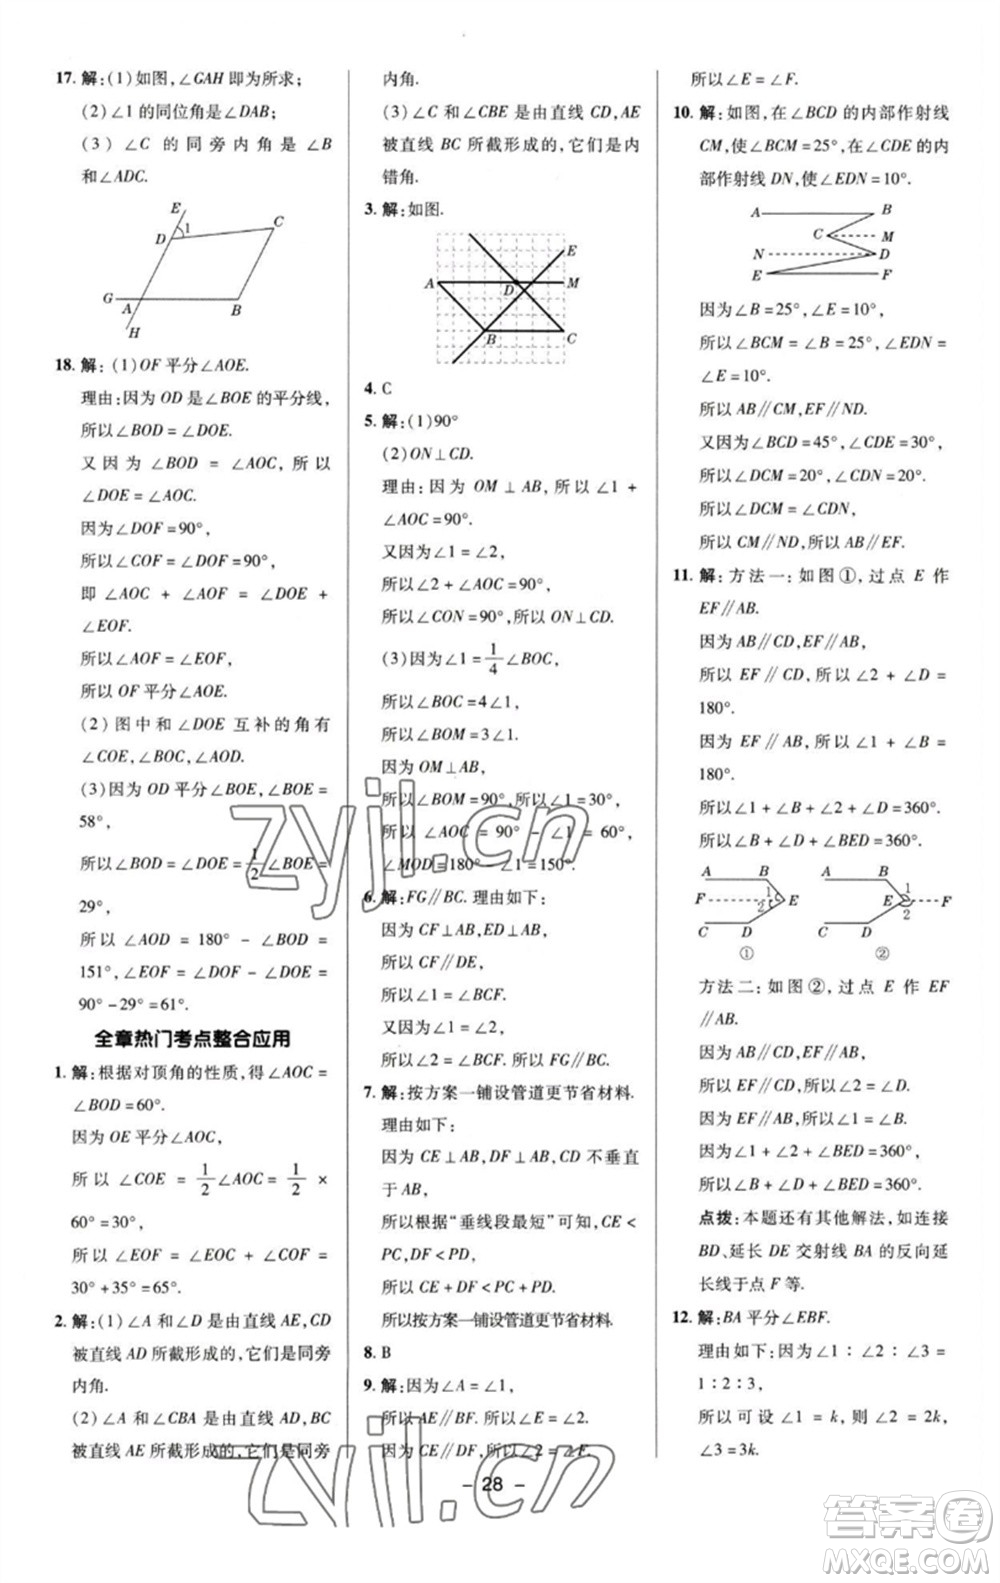 17. 解:(1)如图,∠GAH 即为所求;
(2)∠1 的同位角是∠DAB;
(3) ∠C 的同旁内角是∠B
和∠ADC.
E
D
1
C
G
A
B
H
18. 解: (1)OF 平分∠AOE.
理由:因为 OD 是∠BOE 的平分线,
所以∠BOD = ∠DOE.
又因为∠BOD = ∠AOC,所以
∠DOE = ∠AOC.
因为∠DOF = 90°,
所以∠COF = ∠DOF = 90°,
即 ∠AOC + ∠AOF = ∠DOE +
∠EOF.
所以∠AOF = ∠EOF,
所以 OF 平分∠AOE.
(2) 图中和∠DOE 互补的角有
∠COE,∠BOC,∠AOD.
(3)因为 OD 平分∠BOE,∠BOE =
58°,
所以∠BOD = ∠DOE = 1/2∠BOE =
29°,
所以 ∠AOD = 180° - ∠BOD =
151°,∠EOF = ∠DOF - ∠DOE =
90° - 29° = 61°.
全章热门考点整合应用
1. 解:根据对顶角的性质,得∠AOC =
∠BOD = 60°.
因为 OE 平分∠AOC,
所以 ∠COE = 1/2∠AOC = 1/2 ×
60° = 30°,
所以 ∠EOF = ∠COE + ∠COF =
30° + 35° = 65°.
2. 解:(1)∠A 和∠D 是由直线 AE,CD
被直线 AD 所截形成的,它们是同旁
内角.
(2) ∠A 和∠CBA 是由直线 AD,BC
被直线 AE 所截形成的,它们是同旁
内角.
(3) ∠C 和∠CBE 是由直线 CD,AE
被直线 BC 所截形成的,它们是内
错角.
3. 解:如图.
E
A
D
M
B
C
4. C
5. 解:(1)90°
(2)ON⊥CD.
理由:因为 OM⊥AB,所以∠1 +
∠AOC = 90°.
又因为∠1 = ∠2,
所以∠2 + ∠AOC = 90°,
所以∠CON = 90°,所以 ON⊥CD.
(3)因为∠1 = 1/4∠BOC,
所以∠BOC = 4∠1,
所以∠BOM = 3∠1.
因为 OM⊥AB,
所以∠BOM = 90°,所以∠1 = 30°,
所以∠AOC = 90° - ∠1 = 60°,
∠MOD = 180° - ∠1 = 150°.
6. 解:FG∥BC. 理由如下:
因为 CF⊥AB,ED⊥AB,
所以 CF∥DE,
所以∠1 = ∠BCF.
又因为∠1 = ∠2,
所以∠2 = ∠BCF. 所以 FG∥BC.
7. 解:按方案一铺设管道更节省材料.
理由如下:
因为 CE⊥AB,DF⊥AB,CD 不垂直
于 AB,
所以根据“垂线段最短”可知,CE <
PC,DF < PD.
所以 CE + DF < PC + PD.
所以按方案一铺设管道更节省材料.
8. B
9. 解:因为∠A = ∠1,
所以 AE∥BF. 所以∠E = ∠2.
因为 CE∥DF,所以∠2 = ∠F.
所以∠E = ∠F.
10. 解:如图,在∠BCD 的内部作射线
CM,使∠BCM = 25°,在∠CDE 的内
部作射线 DN,使∠EDN = 10°.
A
B
C
M
N
D
E
F
因为∠B = 25°,∠E = 10°,
所以∠BCM = ∠B,∠EDN =
∠E = 10°.
所以 AB∥CM,EF∥ND.
又因为∠BCD = 45°,∠CDE = 30°,
所以∠DCM = 20°,∠CDN = 20°,
所以∠DCM = ∠CDN,
所以 CM∥ND. 所以 AB∥EF.
11. 解:方法一:如图①,过点 E 作
EF∥AB.
因为 AB∥CD,EF∥AB,
所以 EF∥CD,所以∠2 + ∠D =
180°.
因为 EF∥AB,所以∠1 + ∠B =
180°.
所以∠1 + ∠B + ∠2 + ∠D = 360°.
所以∠B + ∠D + ∠BED = 360°.
A
B
F
1
2
E
C
D
①
A
B
E
1
2
F
C
D
②
方法二:如图②,过点 E 作 EF
∥AB.
因为 AB∥CD,EF∥AB,
所以 EF∥CD,所以∠2 = ∠D.
因为 EF∥AB,所以∠1 = ∠B.
因为∠1 + ∠2 + ∠BED = 360°,
所以∠B + ∠D + ∠BED = 360°.
点拨:本题还有其他解法,如连接
BD、延长 DE 交射线 BA 的反向延
长线于点 F 等.
12. 解:BA 平分∠EBF.
理由如下:因为∠1∶∠2∶∠3 =
1∶2∶3,
所以可设∠1 = k,则∠2 = 2k,
∠3 = 3k.
- 28 -
zyjl.cn
zyjl.cn
答案圈
MXQE.COM